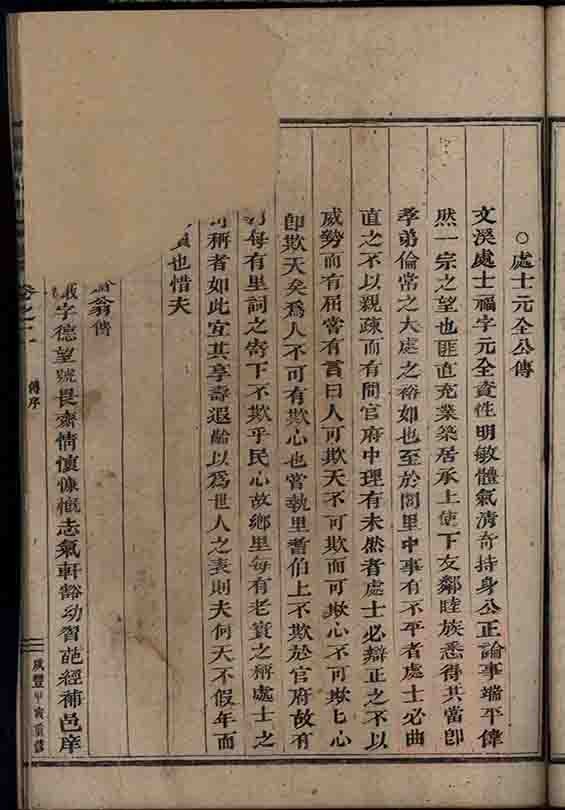 ○處士元全公傳
文溪處士福字元全資性明敏體氣清奇持身公正論事端平偉
然一宗之望也匪直充業築居承上使下友鄰睦族悉得其當即
孝弟倫常之大處之裕如也至於閭里中事有不平者處士必曲
直之不以親疎而有間官府中理有未然者處士必辯正之不以
威勢而有屈嘗有言曰人可欺天不可欺而可欺心不可欺匕心
即欺天矣爲人不可有欺心也嘗執里耆伯上不欺於官府故有
每有里詞之寄下不欺乎民心故鄉里每有老實之稱處士之
可稱者如此宜其享壽遐齡以爲世人之表則夫何天不假年而
也惜夫
翁傳
字德望號畏齋情慎慷慨志氣軒豁幼習葩經補邑庠
卷之二
傳序
二
咸豐甲寅重修